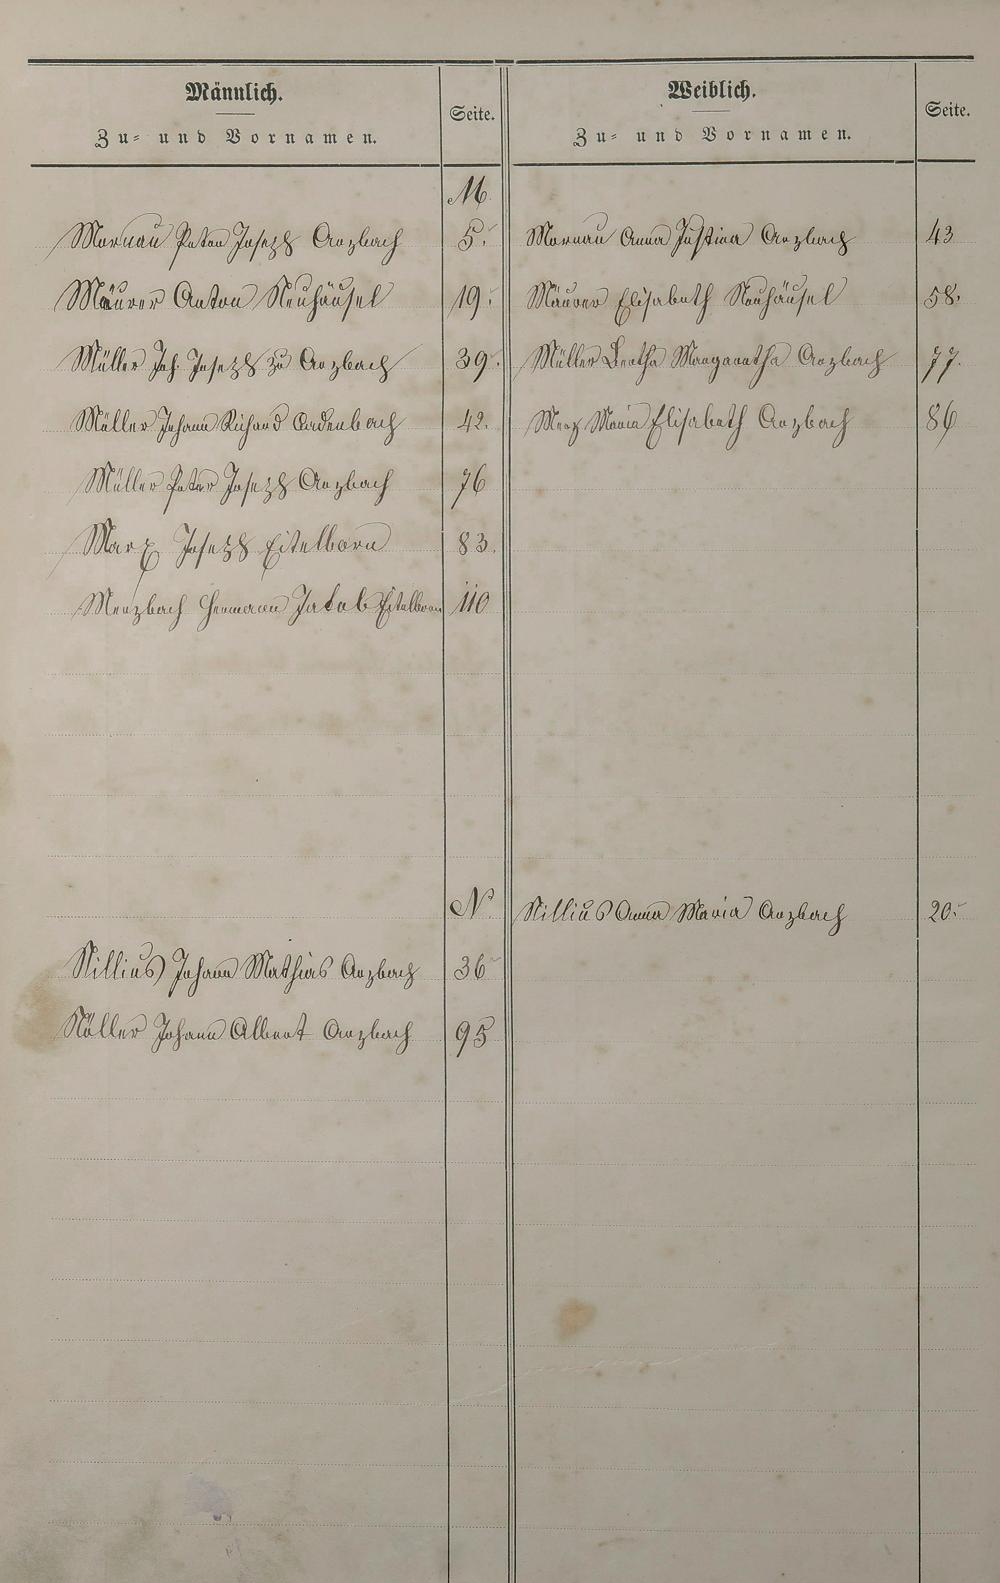 Männlich.
Zu= und Vornamen.
Seite.
Weiblich.
Zu= und Vornamen.
Seite.
M.
Mornau Peter Joseph Arzbach 5.
Mornau Anna Justina Arzbach 43
Mäurer Anton Neuhäusel 19.
Mäurer Elisabeth Neuhäusel 58.
Müller Joh. Joseph zu Arzbach 39.
Müller Bertha Margaretha Arzbach 77.
Müller Johann Richard Cadenbach 42.
Merz Maria Elisabeth Arzbach 86
Müller Peter Joseph Arzbach 76
Marx Joseph Eitelborn 83.
Merzbach Hermann Jakob Eitelborn 110
N.
Nillius Anna Maria Arzbach 20.
Nillius Johann Mathias Arzbach 36
Nöller Johann Albert Arzbach 95